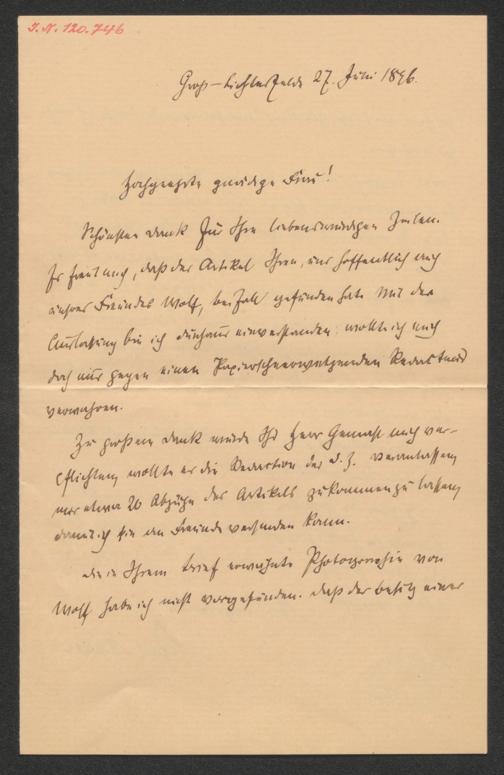 I.N. 120.746
Groß-Lichterfelde 27. Juni 1896.
Hochgeehrte gnädige Frau!
Schönsten Dank für Ihre liebenswürdigen Zeilen.
Es freut mich, daß der Artikel Ihren, und hoffentlich auch
unseres Freundes Wolf, Beifall gefunden hat. Mit der
Auslassung bin ich durchaus einverstanden: wollte ich mich
doch nur gegen einen
verwahren.
Zu großem Dank würde Ihr Herr Gemahl mich ver-
pflichten, wollte er die Redaction der N. Z. veranlassen,
mir etwa 20 Abzüge des Artikels zukommen zu lassen,
damit ich sie an Freunde versenden kann.
Die in Ihrem Brief erwähnte Photographie von
Wolf habe ich nicht vorgefunden. Daß der Besitz einer